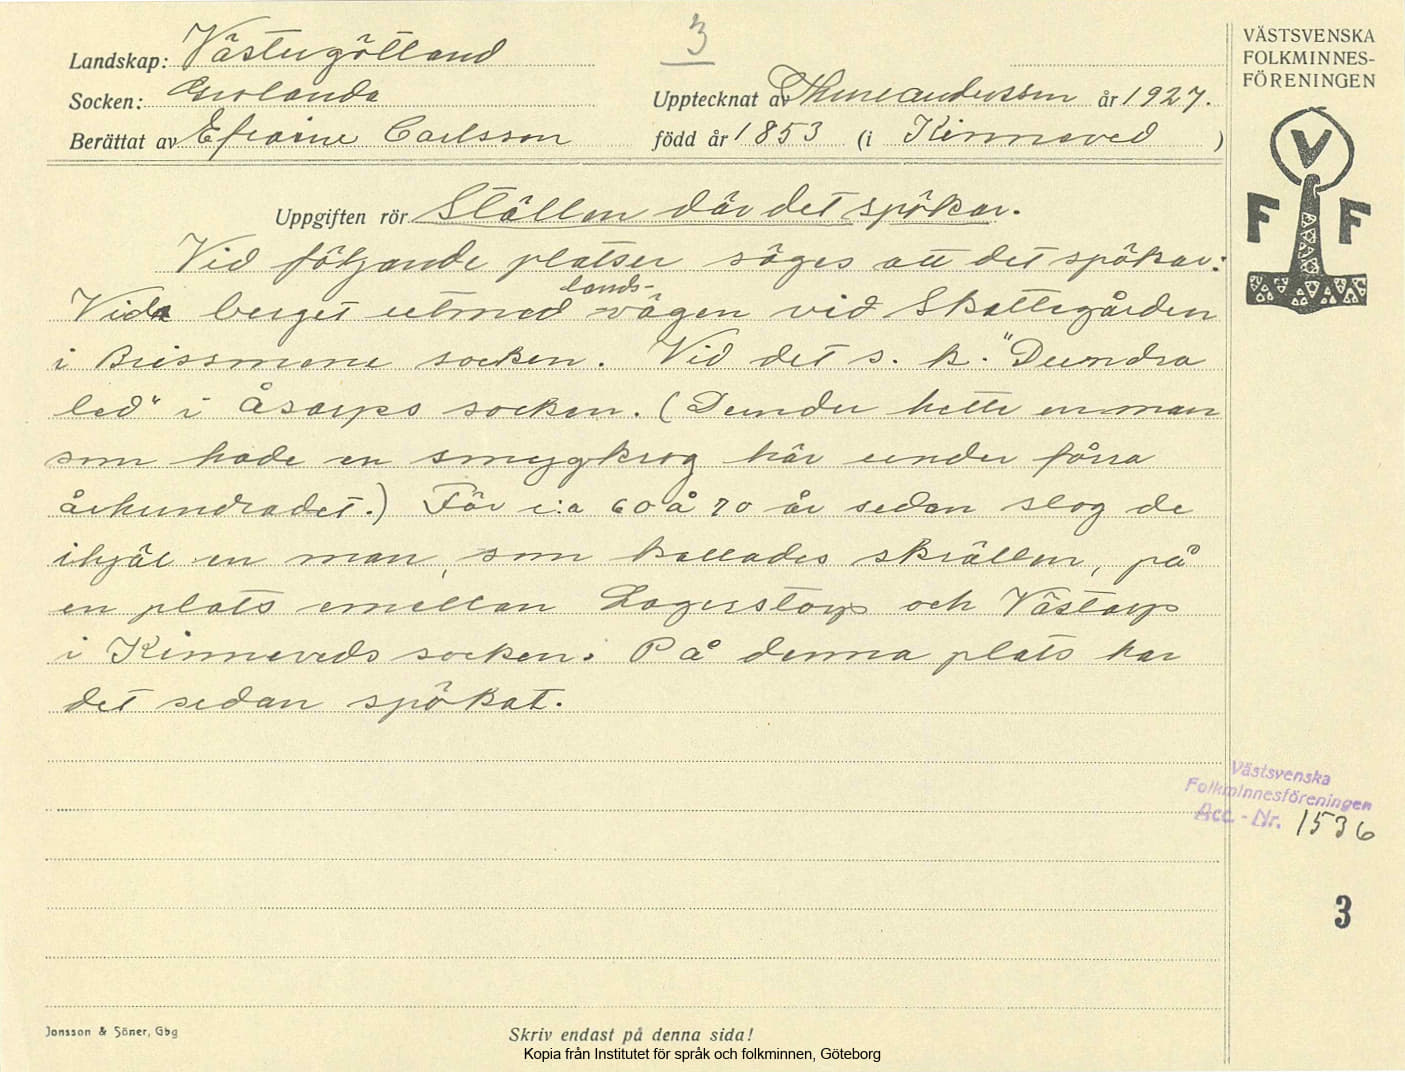 3
Landskap: Västergötland
Socken:
Upptecknat av Thure Andersson år 1927.
Berättat av Efraim Carlsson född år 1853 (i Kinneved )
Uppgiften rör Ställen där det spökar.
Vid följande platser säges att det spökar:
Vid berget utmed lands-vägen vid Skattegården
i Brismene socken. Vid det s. k. "Dundra
led" i Åsarps socken. (Dunder hette en man
som hade en smygkrog här under förra
århundradet.) För c:a 60 à 70 år sedan slog de
ihjäl en man, som kallades skrällen, på
en plats emellan Lagerstorp och Västarp
i Kinneveds socken. På denna plats har
det sedan spökat.
VÄSTSVENSKA
FOLKMINNES-
FÖRENINGEN
V
F F
Västsvenska
Folkminnesföreningen
Acc. - Nr. 1536
3
Jonsson & Söner, Gbg
Skriv endast på denna sida!
Kopia från Institutet för språk och folkminnen, Göteborg